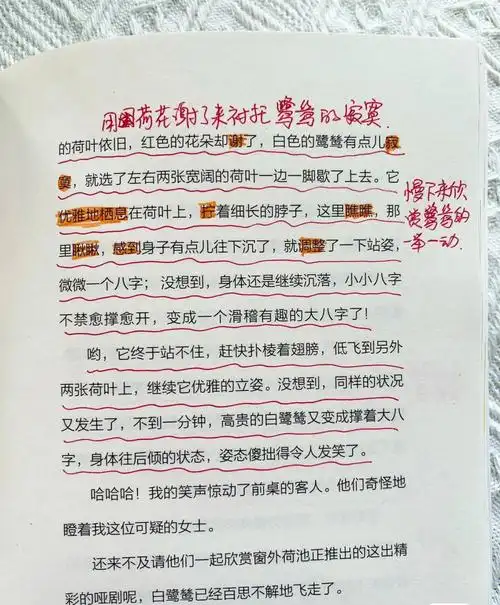 用荷花谢了来衬托鹭鸶的寂寞.
的荷叶依旧，红色的花朵却谢了，白色的鹭鸶有点儿寂
寞，就选了左右两张宽阔的荷叶一边一脚歇了上去。它
优雅地栖息在荷叶上，拧着细长的脖子，这里瞧瞧，那
里瞅瞅，感到身子有点儿往下沉了，就调整了一下站姿，
微微一个八字；没想到，身体还是继续沉落，小小八字
不禁愈撑愈开，变成一个滑稽有趣的大八字了！
哟，它终于站不住，赶快扑棱着翅膀，低飞到另外
两张荷叶上，继续它优雅的立姿。没想到，同样的状况
又发生了，不到一分钟，高贵的白鹭鸶又变成撑着大八
字，身体往后倾的状态，姿态傻拙得令人发笑了。
哈哈哈！我的笑声惊动了前桌的客人。他们奇怪地
瞪着我这位可疑的女士。
还来不及请他们一起欣赏窗外荷池正推出的这出精
彩的哑剧呢，白鹭鸶已经百思不解地飞走了。
慢下来欣
赏鹭鸶的
一举一动.